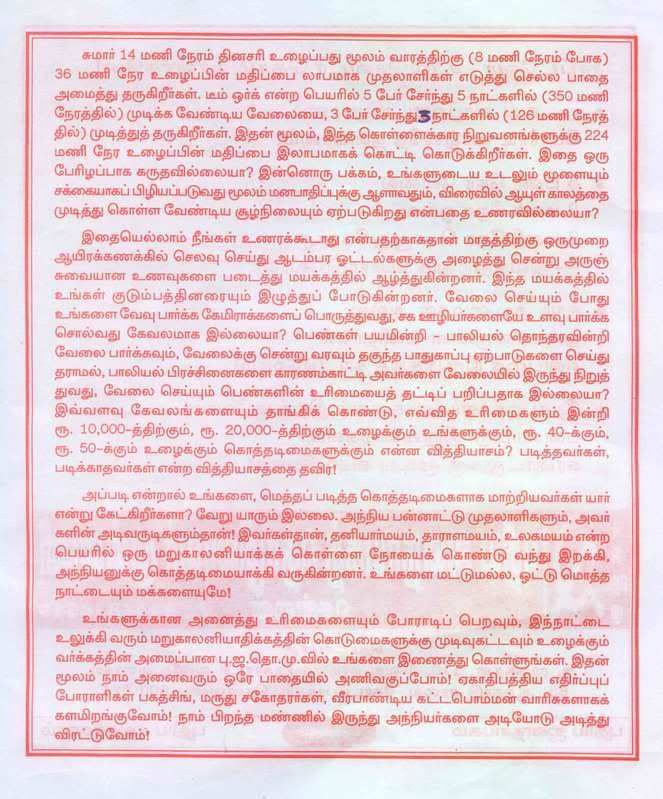 சுமார் 14 மணி நேரம் தினசரி உழைப்பது மூலம் வாரத்திற்கு (8 மணி நேரம் போக)
36 மணி நேர உழைப்பின் மதிப்பை லாபமாக முதலாளிகள் எடுத்து செல்ல பாதை
அமைத்து தருகிறீர்கள். டீம் ஒர்க் என்ற பெயரில் 5 பேர் சேர்ந்து 5 நாட்களில் (350 மணி
நேரத்தில்) முடிக்க வேண்டிய வேலையை, 3 பேர் சேர்ந்து 3 நாட்களில் (126 மணி நேரத்
தில்) முடித்துத் தருகிறீர்கள். இதன் மூலம், இந்த கொள்ளைக்கார நிறுவனங்களுக்கு 224
மணி நேர உழைப்பின் மதிப்பை இலாபமாகக் கொட்டி கொடுக்கிறீர்கள். இதை ஒரு
பேரிழப்பாக கருதவில்லையா? இன்னொரு பக்கம், உங்களுடைய உடலும் மூளையும்
சக்கையாகப் பிழியப்படுவது மூலம் மனபாதிப்புக்கு ஆளாவதும், விரைவில் ஆயுள் காலத்தை
முடித்து கொள்ள வேண்டிய சூழ்நிலையும் ஏற்படுகிறது என்பதை உணரவில்லையா?
இதையெல்லாம் நீங்கள் உணரக்கூடாது என்பதற்காகதான் மாதத்திற்கு ஒருமுறை
ஆயிரக்கணக்கில் செலவு செய்து ஆடம்பர ஓட்டல்களுக்கு அழைத்து சென்று அருஞ்
சுவையான உணவுகளை படைத்து மயக்கத்தில் ஆழ்த்துகின்றனர். இந்த மயக்கத்தில்
உங்கள் குடும்பத்தினரையும் இழுத்துப் போடுகின்றனர். வேலை செய்யும் போது
உங்களை வேவு பார்க்க கேமிராக்களைப் பொருத்துவது, சக ஊழியர்களையே உளவு பார்க்க
சொல்வது கேவலமாக இல்லையா? பெண்கள் பயமின்றி – பாலியல் தொந்தரவின்றி
வேலை பார்க்கவும், வேலைக்கு சென்று வரவும் தகுந்த பாதுகாப்பு ஏற்பாடுகளை செய்து
தராமல், பாலியல் பிரச்சினைகளை காரணம்காட்டி அவர்களை வேலையில் இருந்து நிறுத்
துவது, வேலை செய்யும் பெண்களின் உரிமையைத் தட்டிப் பறிப்பதாக இல்லையா?
இவ்வளவு கேவலங்களையும் தாங்கிக் கொண்டு, எவ்வித உரிமைகளும் இன்றி
ரூ. 10,000-த்திற்கும், ரூ. 20,000-த்திற்கும் உழைக்கும் உங்களுக்கும், ரூ. 40-க்கும்,
ரூ. 50-க்கும் உழைக்கும் கொத்தடிமைகளுக்கும் என்ன வித்தியாசம்? படித்தவர்கள்,
படிக்காதவர்கள் என்ற வித்தியாசத்தை தவிர!
அப்படி என்றால் உங்களை, மெத்தப் படித்த கொத்தடிமைகளாக மாற்றியவர்கள் யார்
என்று கேட்கிறீர்களா? வேறு யாரும் இல்லை. அந்நிய பன்னாட்டு முதலாளிகளும், அவர்
களின் அடிவருடிகளும்தான்! இவர்கள்தான், தனியார்மயம், தாராளமயம், உலகமயம் என்ற
பெயரில் ஒரு மறுகாலனியாக்கக் கொள்ளை நோயைக் கொண்டு வந்து இறக்கி,
அந்நியனுக்கு கொத்தடிமையாக்கி வருகின்றனர். உங்களை மட்டுமல்ல, ஒட்டு மொத்த
நாட்டையும் மக்களையுமே!
உங்களுக்கான அனைத்து உரிமைகளையும் போராடிப் பெறவும், இந்நாட்டை
உலுக்கி வரும் மறுகாலனியாதிக்கத்தின் கொடுமைகளுக்கு முடிவுகட்டவும் உழைக்கும்
வர்க்கத்தின் அமைப்பான பு.ஜ.தொ.மு.வில் உங்களை இணைத்து கொள்ளுங்கள். இதன்
மூலம் நாம் அனைவரும் ஒரே பாதையில் அணிவகுப்போம்! ஏகாதிபத்திய எதிர்ப்புப்
போராளிகள் பகத்சிங், மருது சகோதரர்கள், வீரபாண்டிய கட்டபொம்மன் வாரிசுகளாகக்
களமிறங்குவோம்! நாம் பிறந்த மண்ணில் இருந்து அந்நியர்களை அடியோடு அடித்து
விரட்டுவோம்!